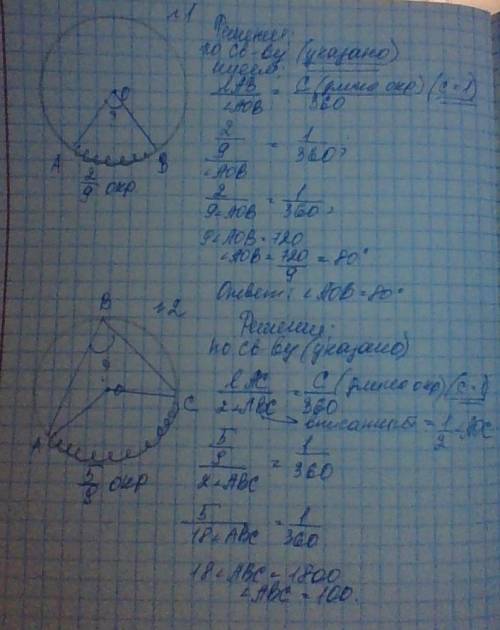 №1
Решение:
по св-ву (указано)
имеем:
lAB/∠AOB = C (длина окр)/360 (c=1)
2/9/∠AOB = 1/360;
2/9∠AOB = 1/360;
9∠AOB = 720
∠AOB = 720/9 = 80°
Ответ: ∠AOB = 80°
O
?
A B
2/9 окр
№2
Решение:
по св-ву (указано)
lAC/2∠ABC = C (длина окр)/360 (c=1)
вписанный = 1/2∠AOC
5/9/2∠ABC = 1/360
5/18∠ABC = 1/360
18∠ABC = 1800
∠ABC = 100.
B
?
O
C
A
5/9 окр